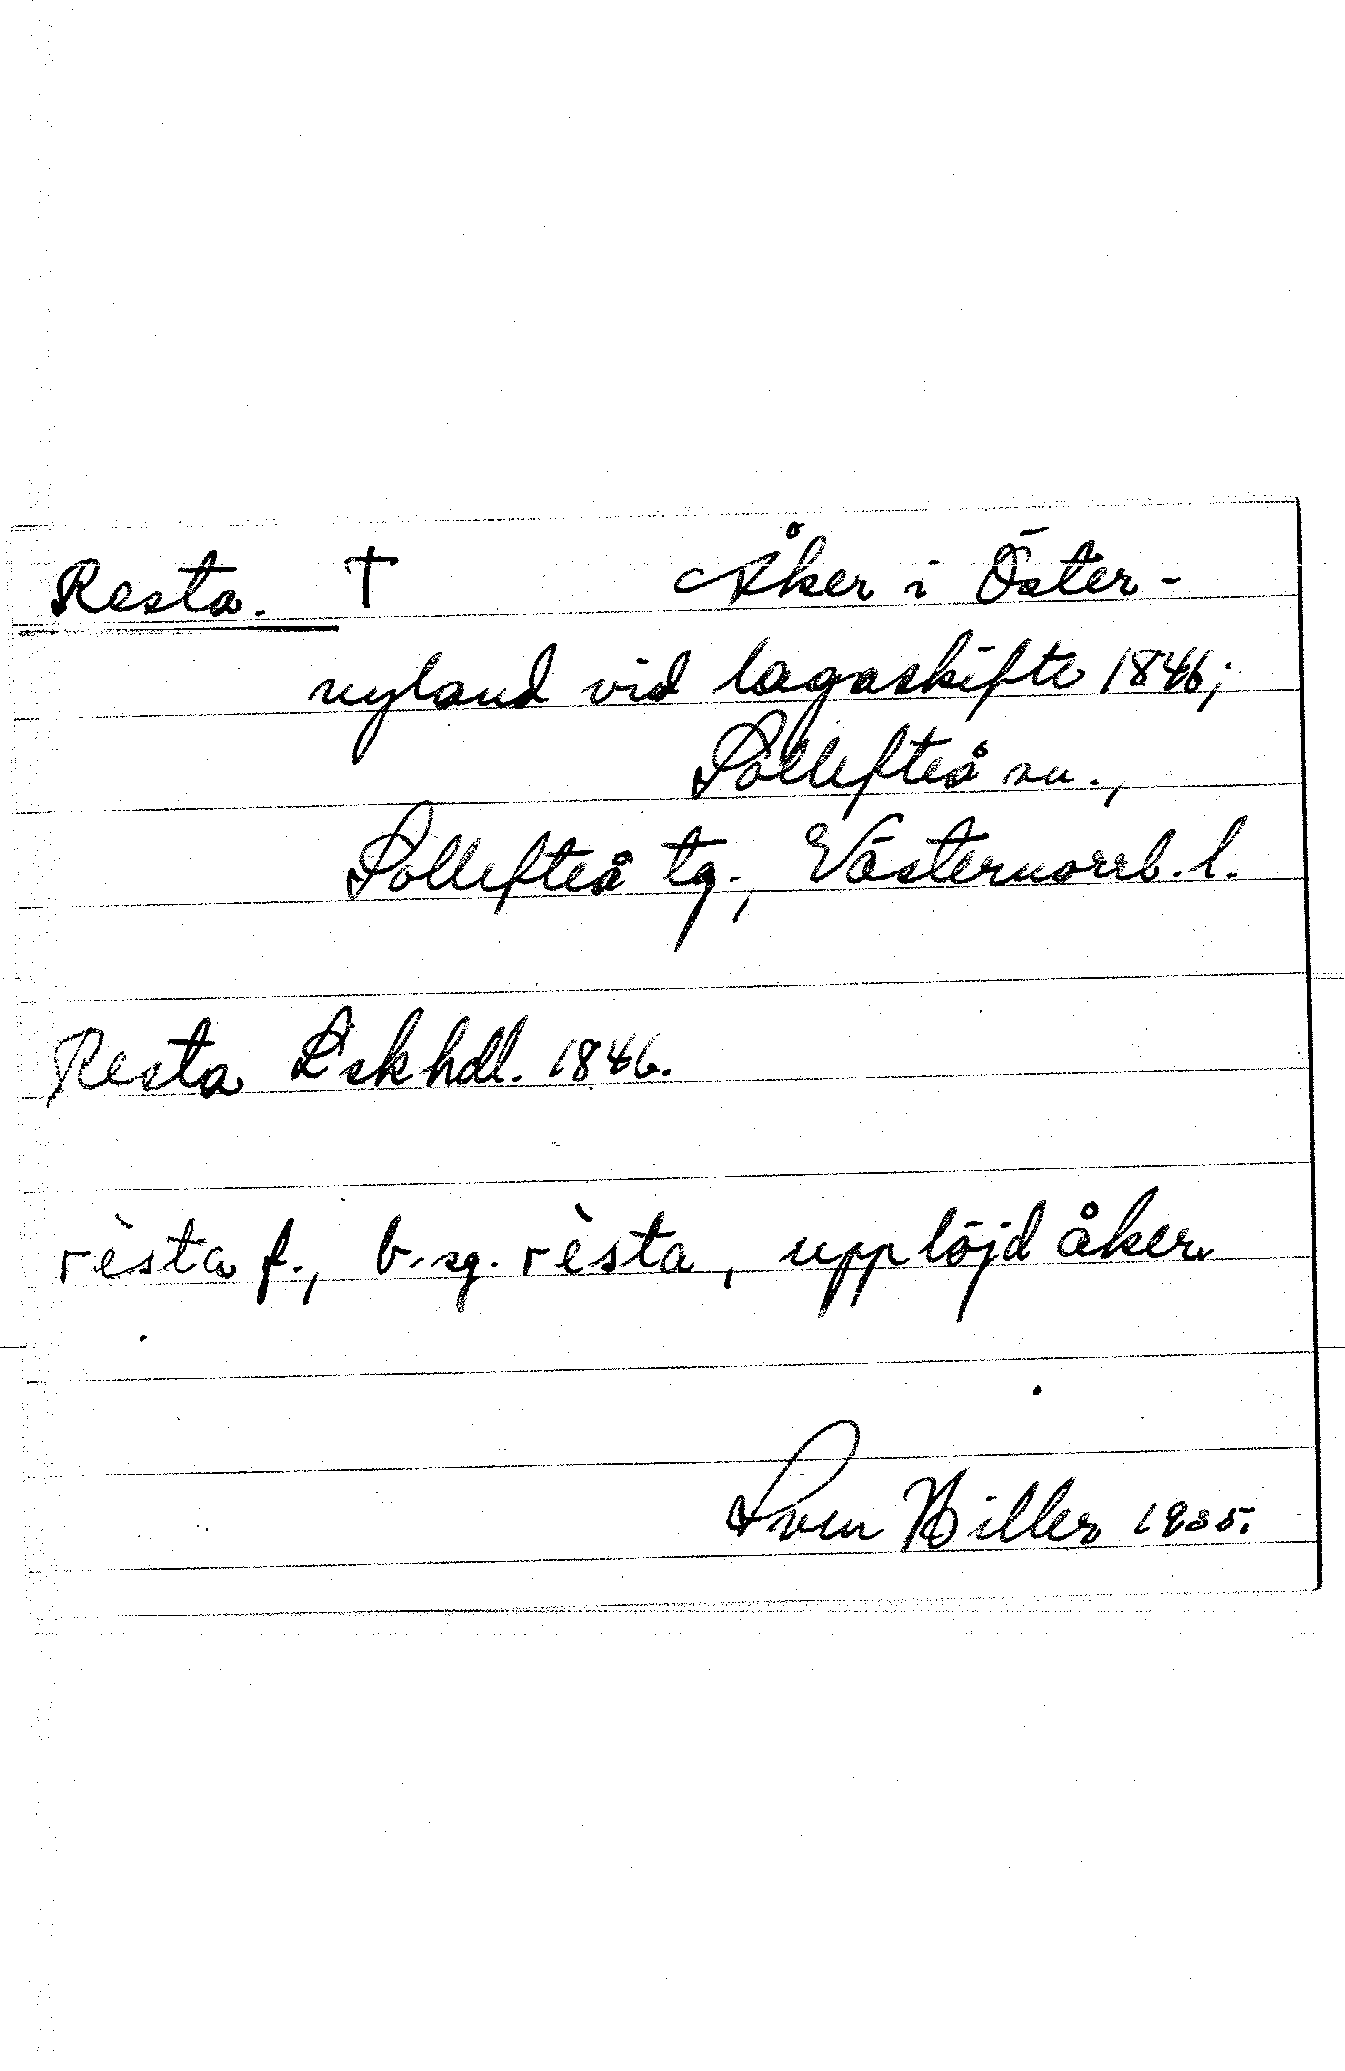 Resta. † Åker i Öster-
nyland vid lagaskifte 1846;
Sollefteå sn.,
Sollefteå tg., Västernorrl. l.
Resta L skhdl. 1846.
rèsta f., b. sg. rèsta, upplöjd åker.
Sven Hiller 1935.